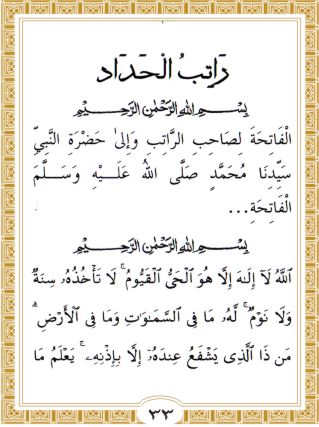 رَاتِبُ الْحَدَاد
بِسْمِ اللهِ الرَّحْمٰنِ الرَّحِيْمِ
الْفَاتِحَةَ لِصَاحِبِ الرَّاتِبِ وَإِلىٰ حَضْرَةِ النَّبِيِّ
سَيِّدِنَا مُحَمَّدٍ صَلَّى اللهُ عَلَيْهِ وَسَلَّمَ
الْفَاتِحَةِ...
بِسْمِ اللهِ الرَّحْمٰنِ الرَّحِيْمِ
ٱللَّهُ لَآ إِلَـٰهَ إِلَّا هُوَ ٱلْحَىُّ ٱلْقَيُّومُ ۚ لَا تَأْخُذُهُۥ سِنَةٌۭ
وَلَا نَوْمٌۭ ۚ لَّهُۥ مَا فِى ٱلسَّمَـٰوَٰتِ وَمَا فِى ٱلْأَرْضِ ۗ
مَن ذَا ٱلَّذِى يَشْفَعُ عِندَهُۥٓ إِلَّا بِإِذْنِهِۦ ۚ يَعْلَمُ مَا
٣٣